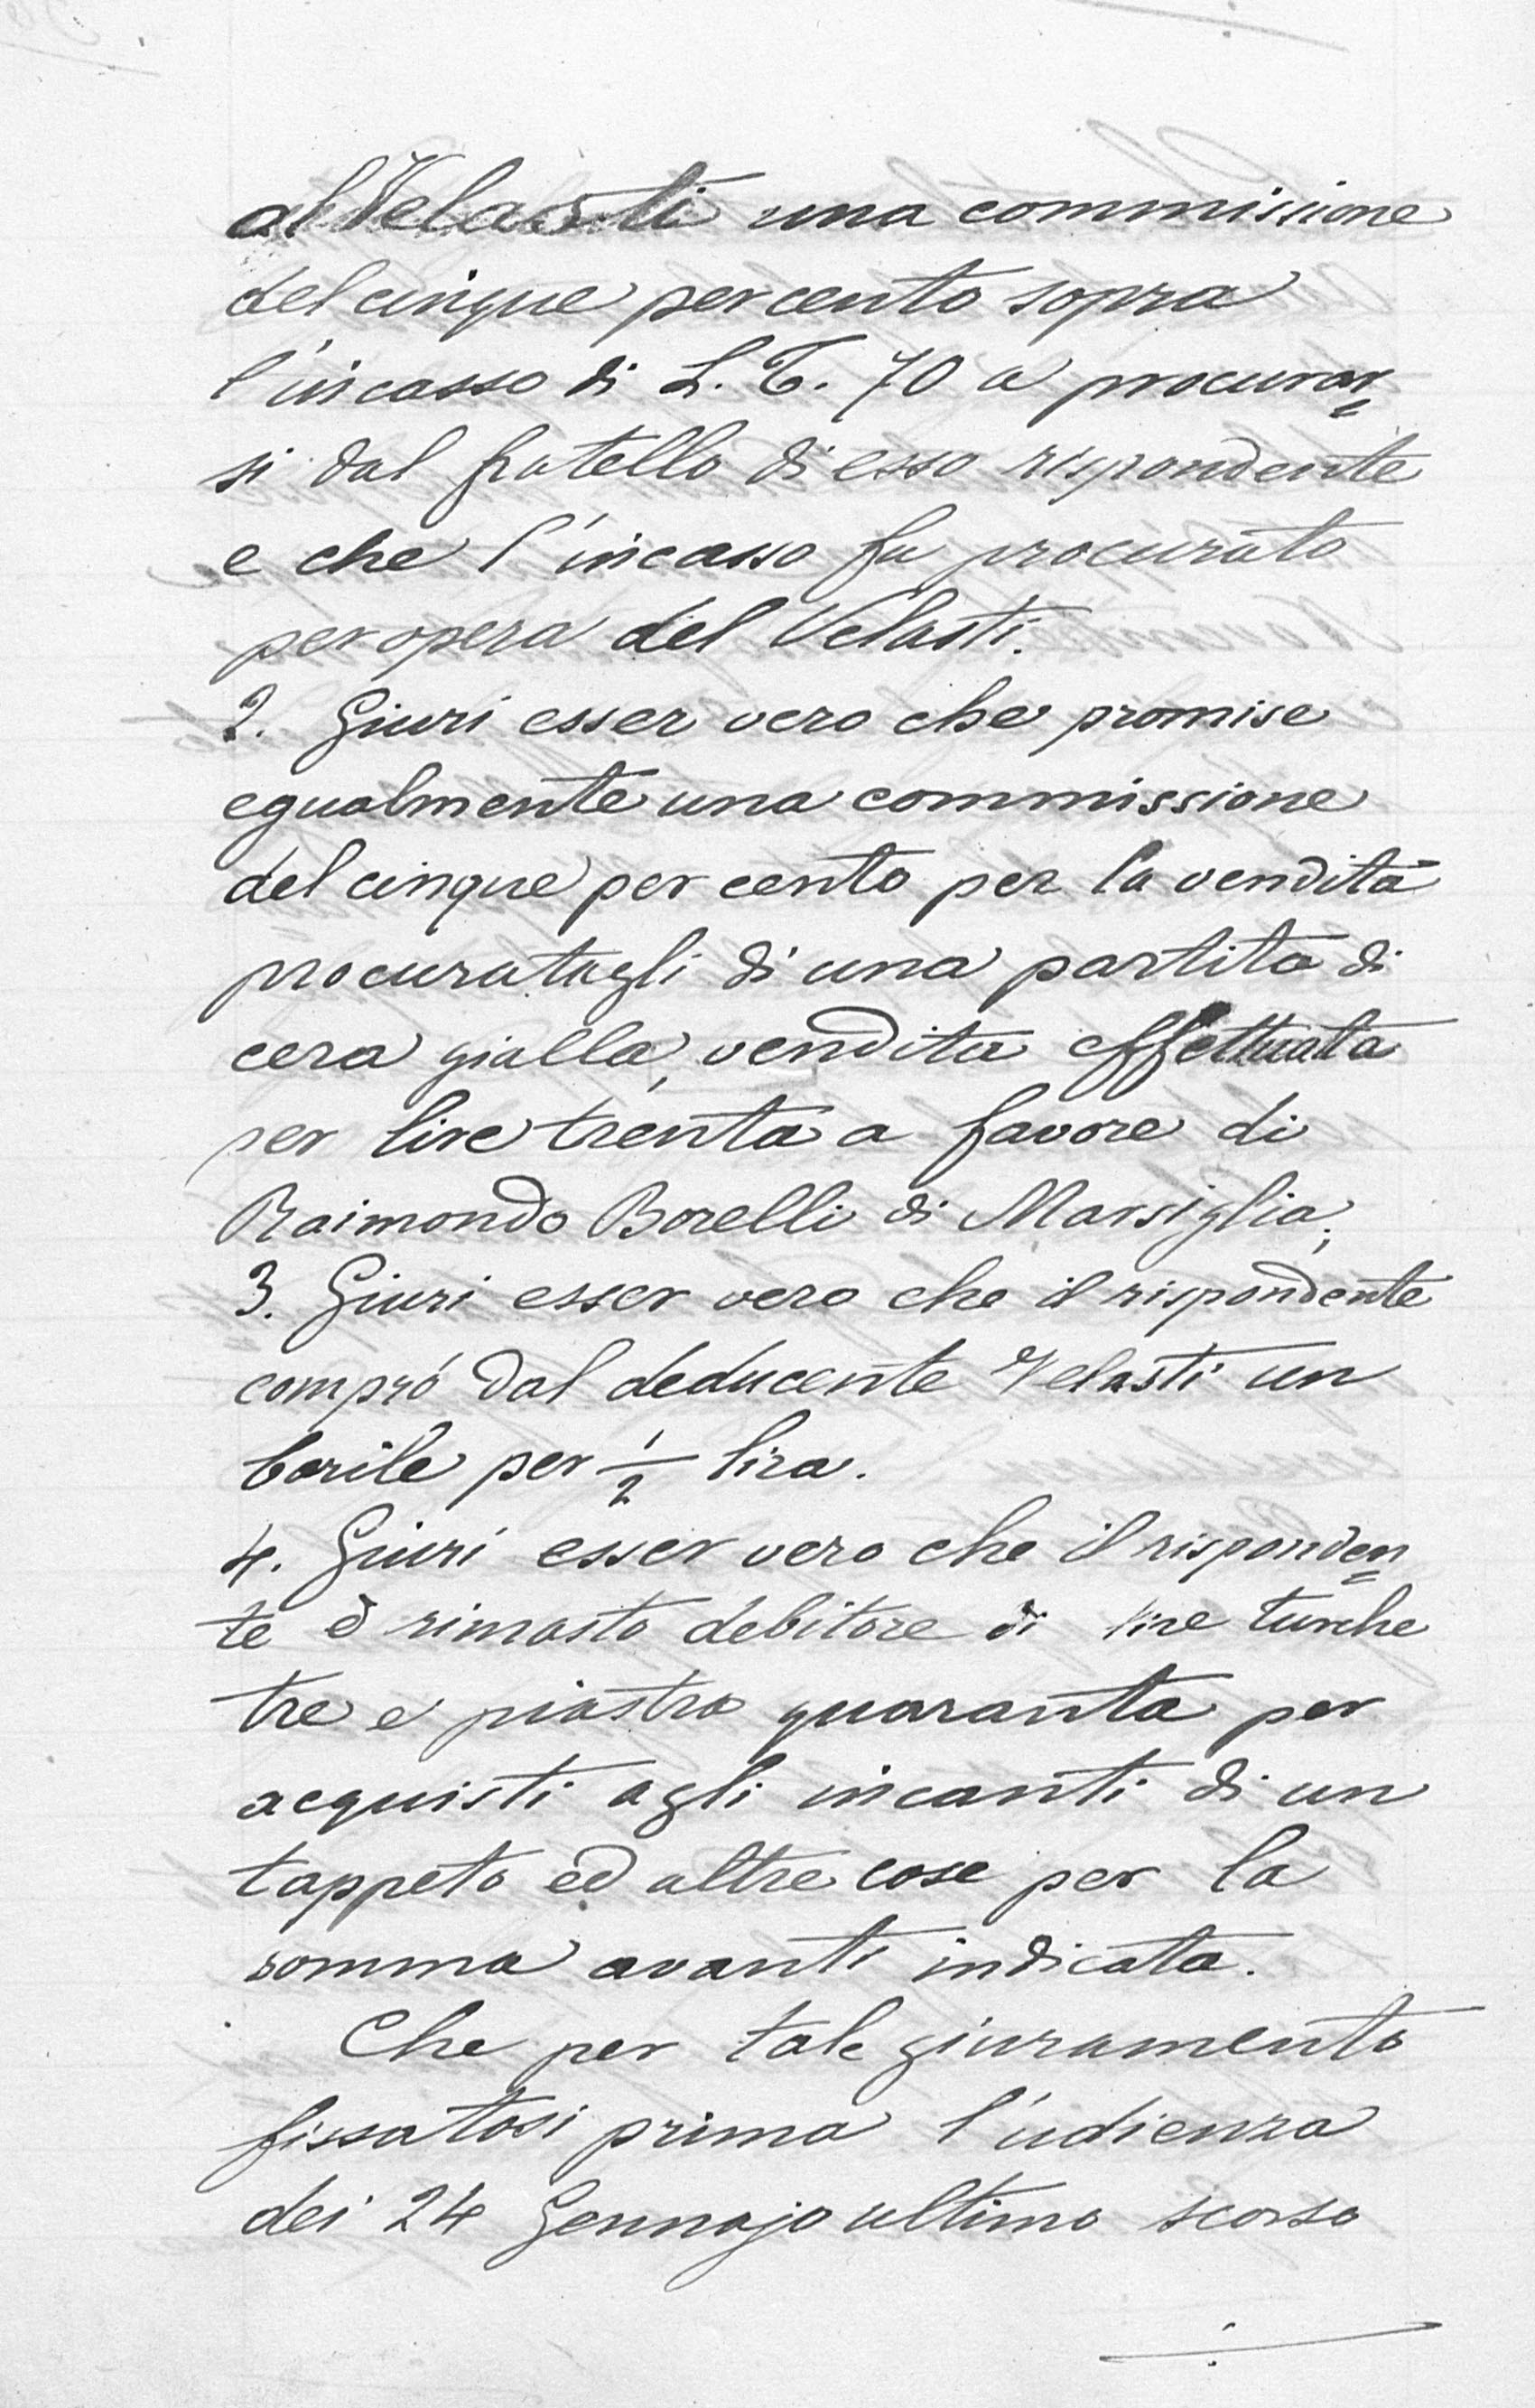 al Velasti una commissione
del cinque per cento sopra
l'incasso di L. T. 70 a procurar=
si dal fratello di esso rispondente
e che l'incasso fu procurato
per opera del Velasti.
2. Giuri esser vero che promise
egualmente una commissione
del cinque per cento per la vendita
procuratagli di una partita di
cera gialla, vendita effettuata
per lire trenta a favore di
Raimondo Borelli di Marsiglia;
3. Giuri esser vero che il rispondente
compró dal deducente Velasti un
barile per 1/2 lira.
4. Giuri esser vero che il risponden=
te è rimasto debitore di lire turche
tre e piastre quaranta per
acquisti agli incanti di un
tappeto ed altre cose per la
somma avanti indicata.
Che per tale giuramento
fissatosi prima l'udienza
dei 24 Gennajo ultimo scorso